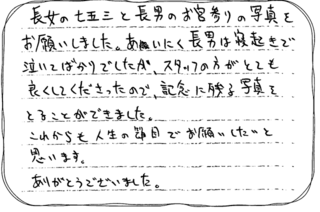 長女の七五三と長男のお宮参りの写真を
お願いしました。あいにく長男は寝起きで
泣いてばかりでしたが、スタッフの方がとても
良くしてくださったので、記念に残る写真を
とることができました。
これからも人生の節目でお願いしたいと
思います。
ありがとうございました。